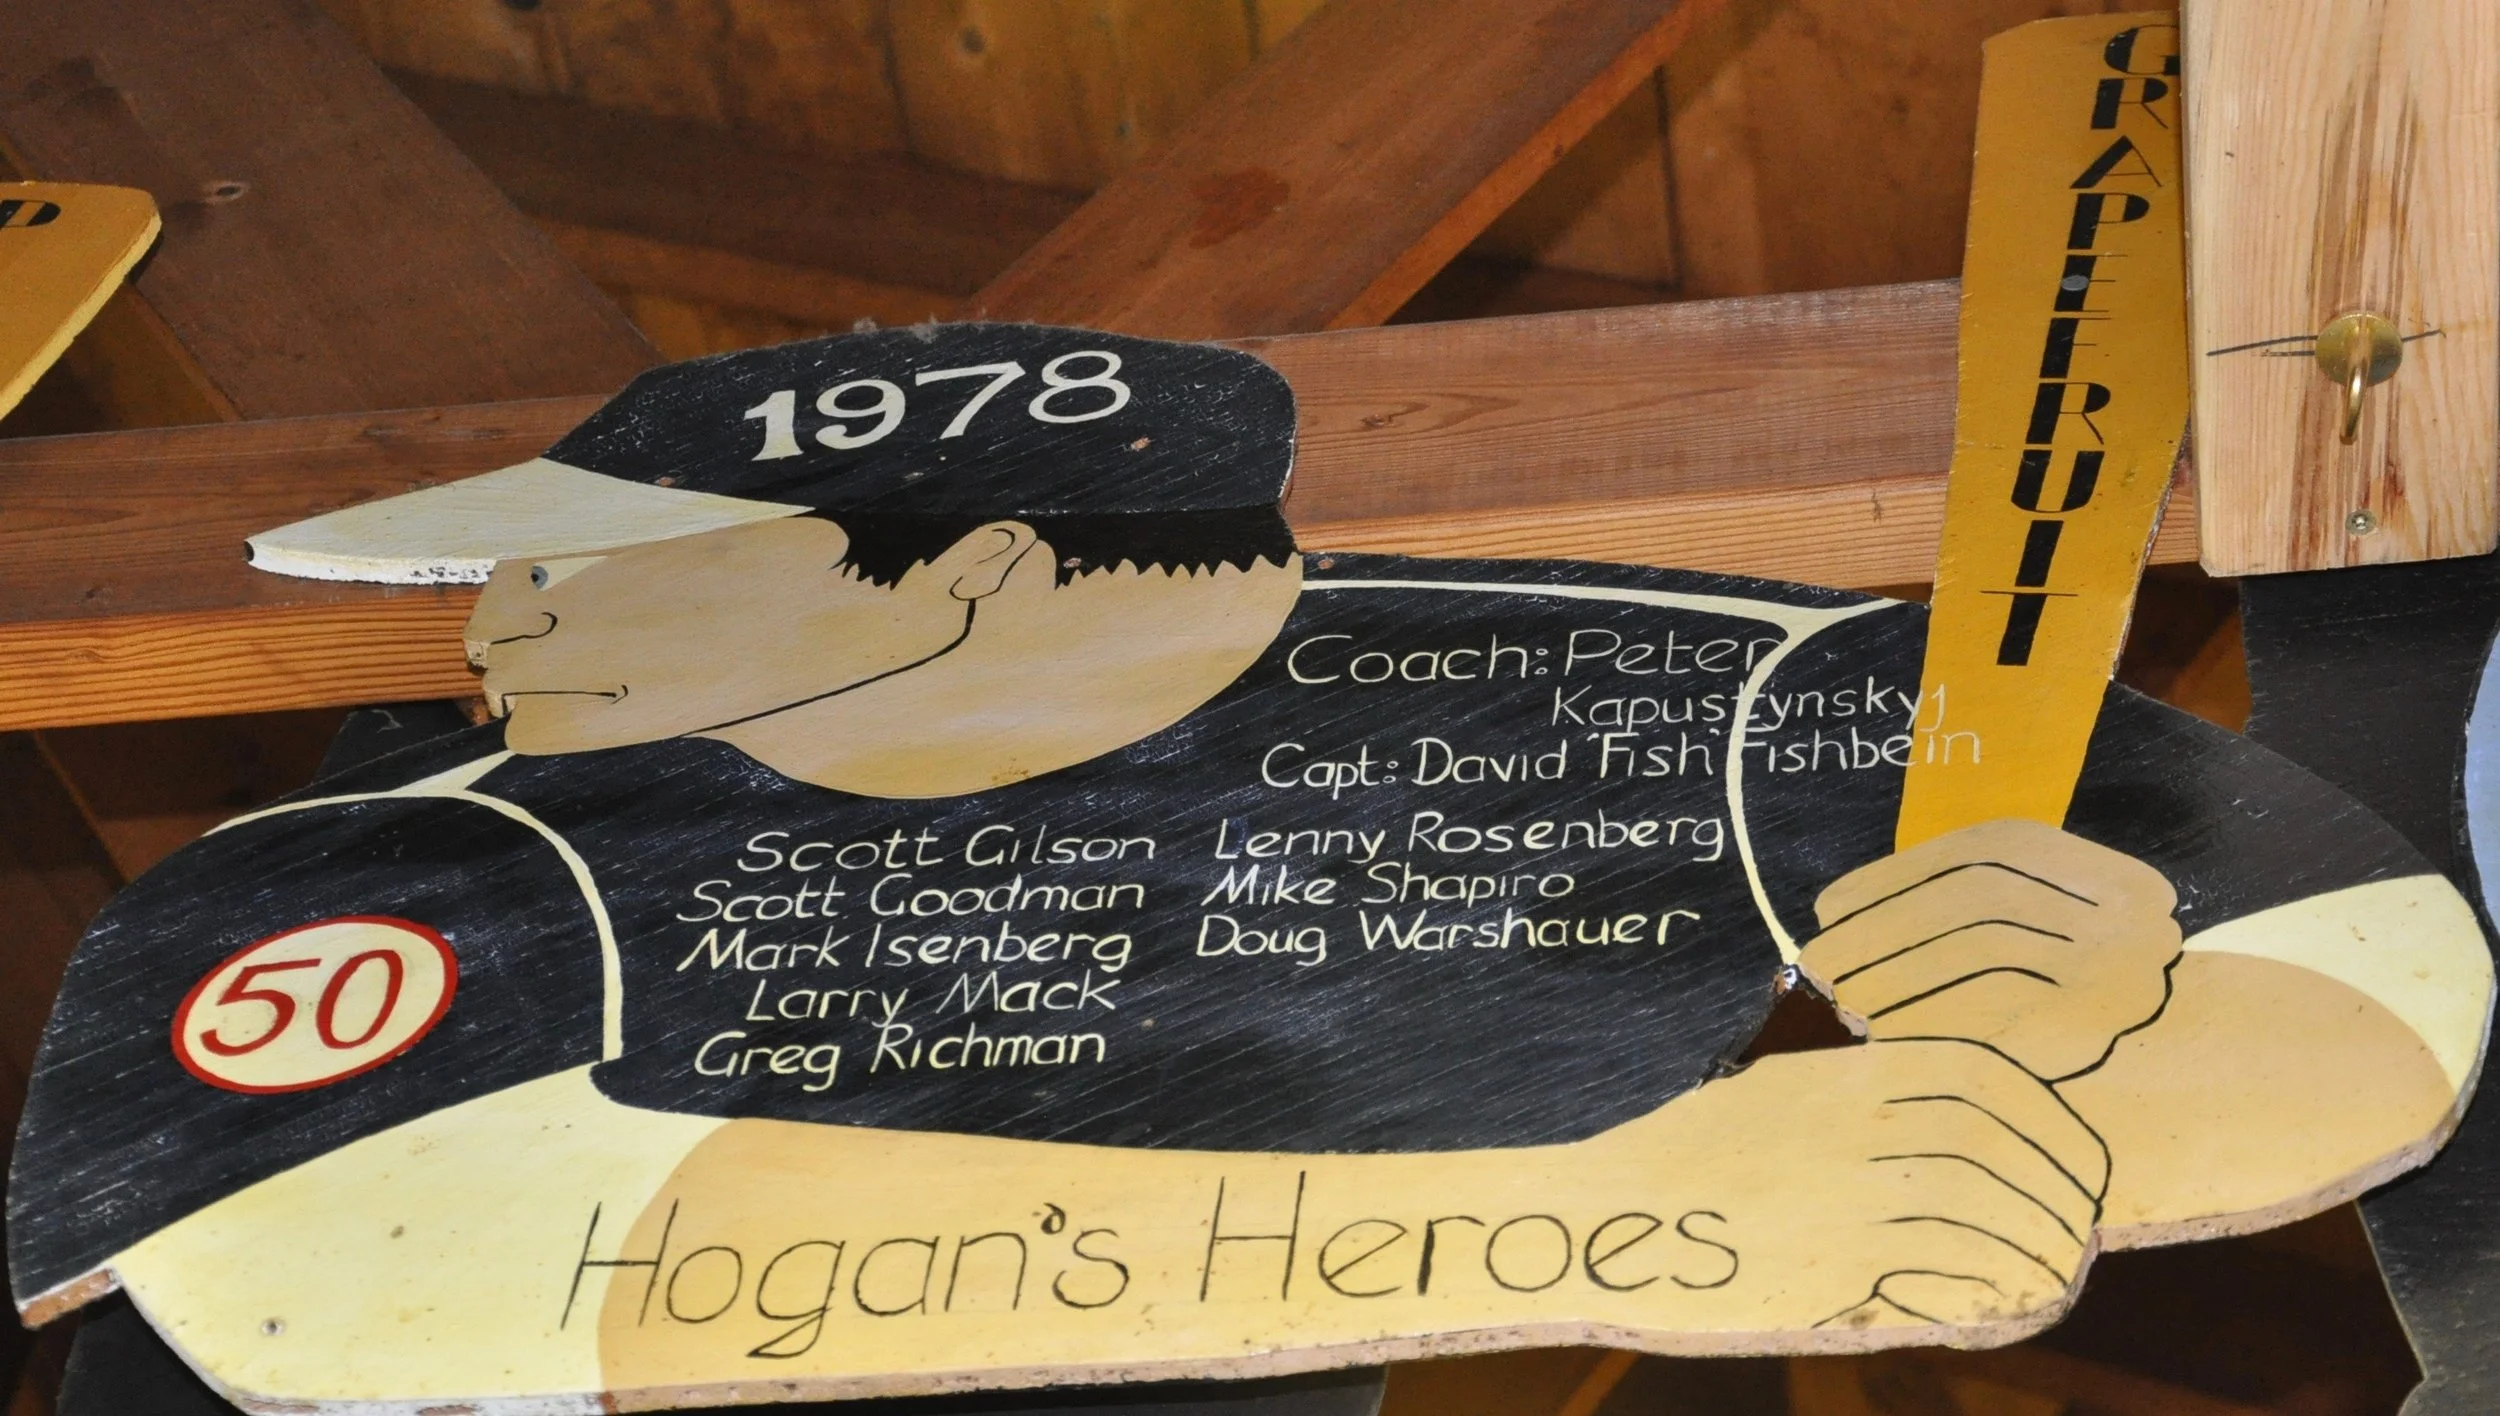 P
1978
GRAPEFRUIT
Coach: Peter
Kapustynsky
Capt: David 'Fish' Fishbein
Scott Gilson
Scott Goodman
Mark Isenberg
Larry Mack
Greg Richman
Lenny Rosenberg
Mike Shapiro
Doug Warshauer
50
Hogan's Heroes